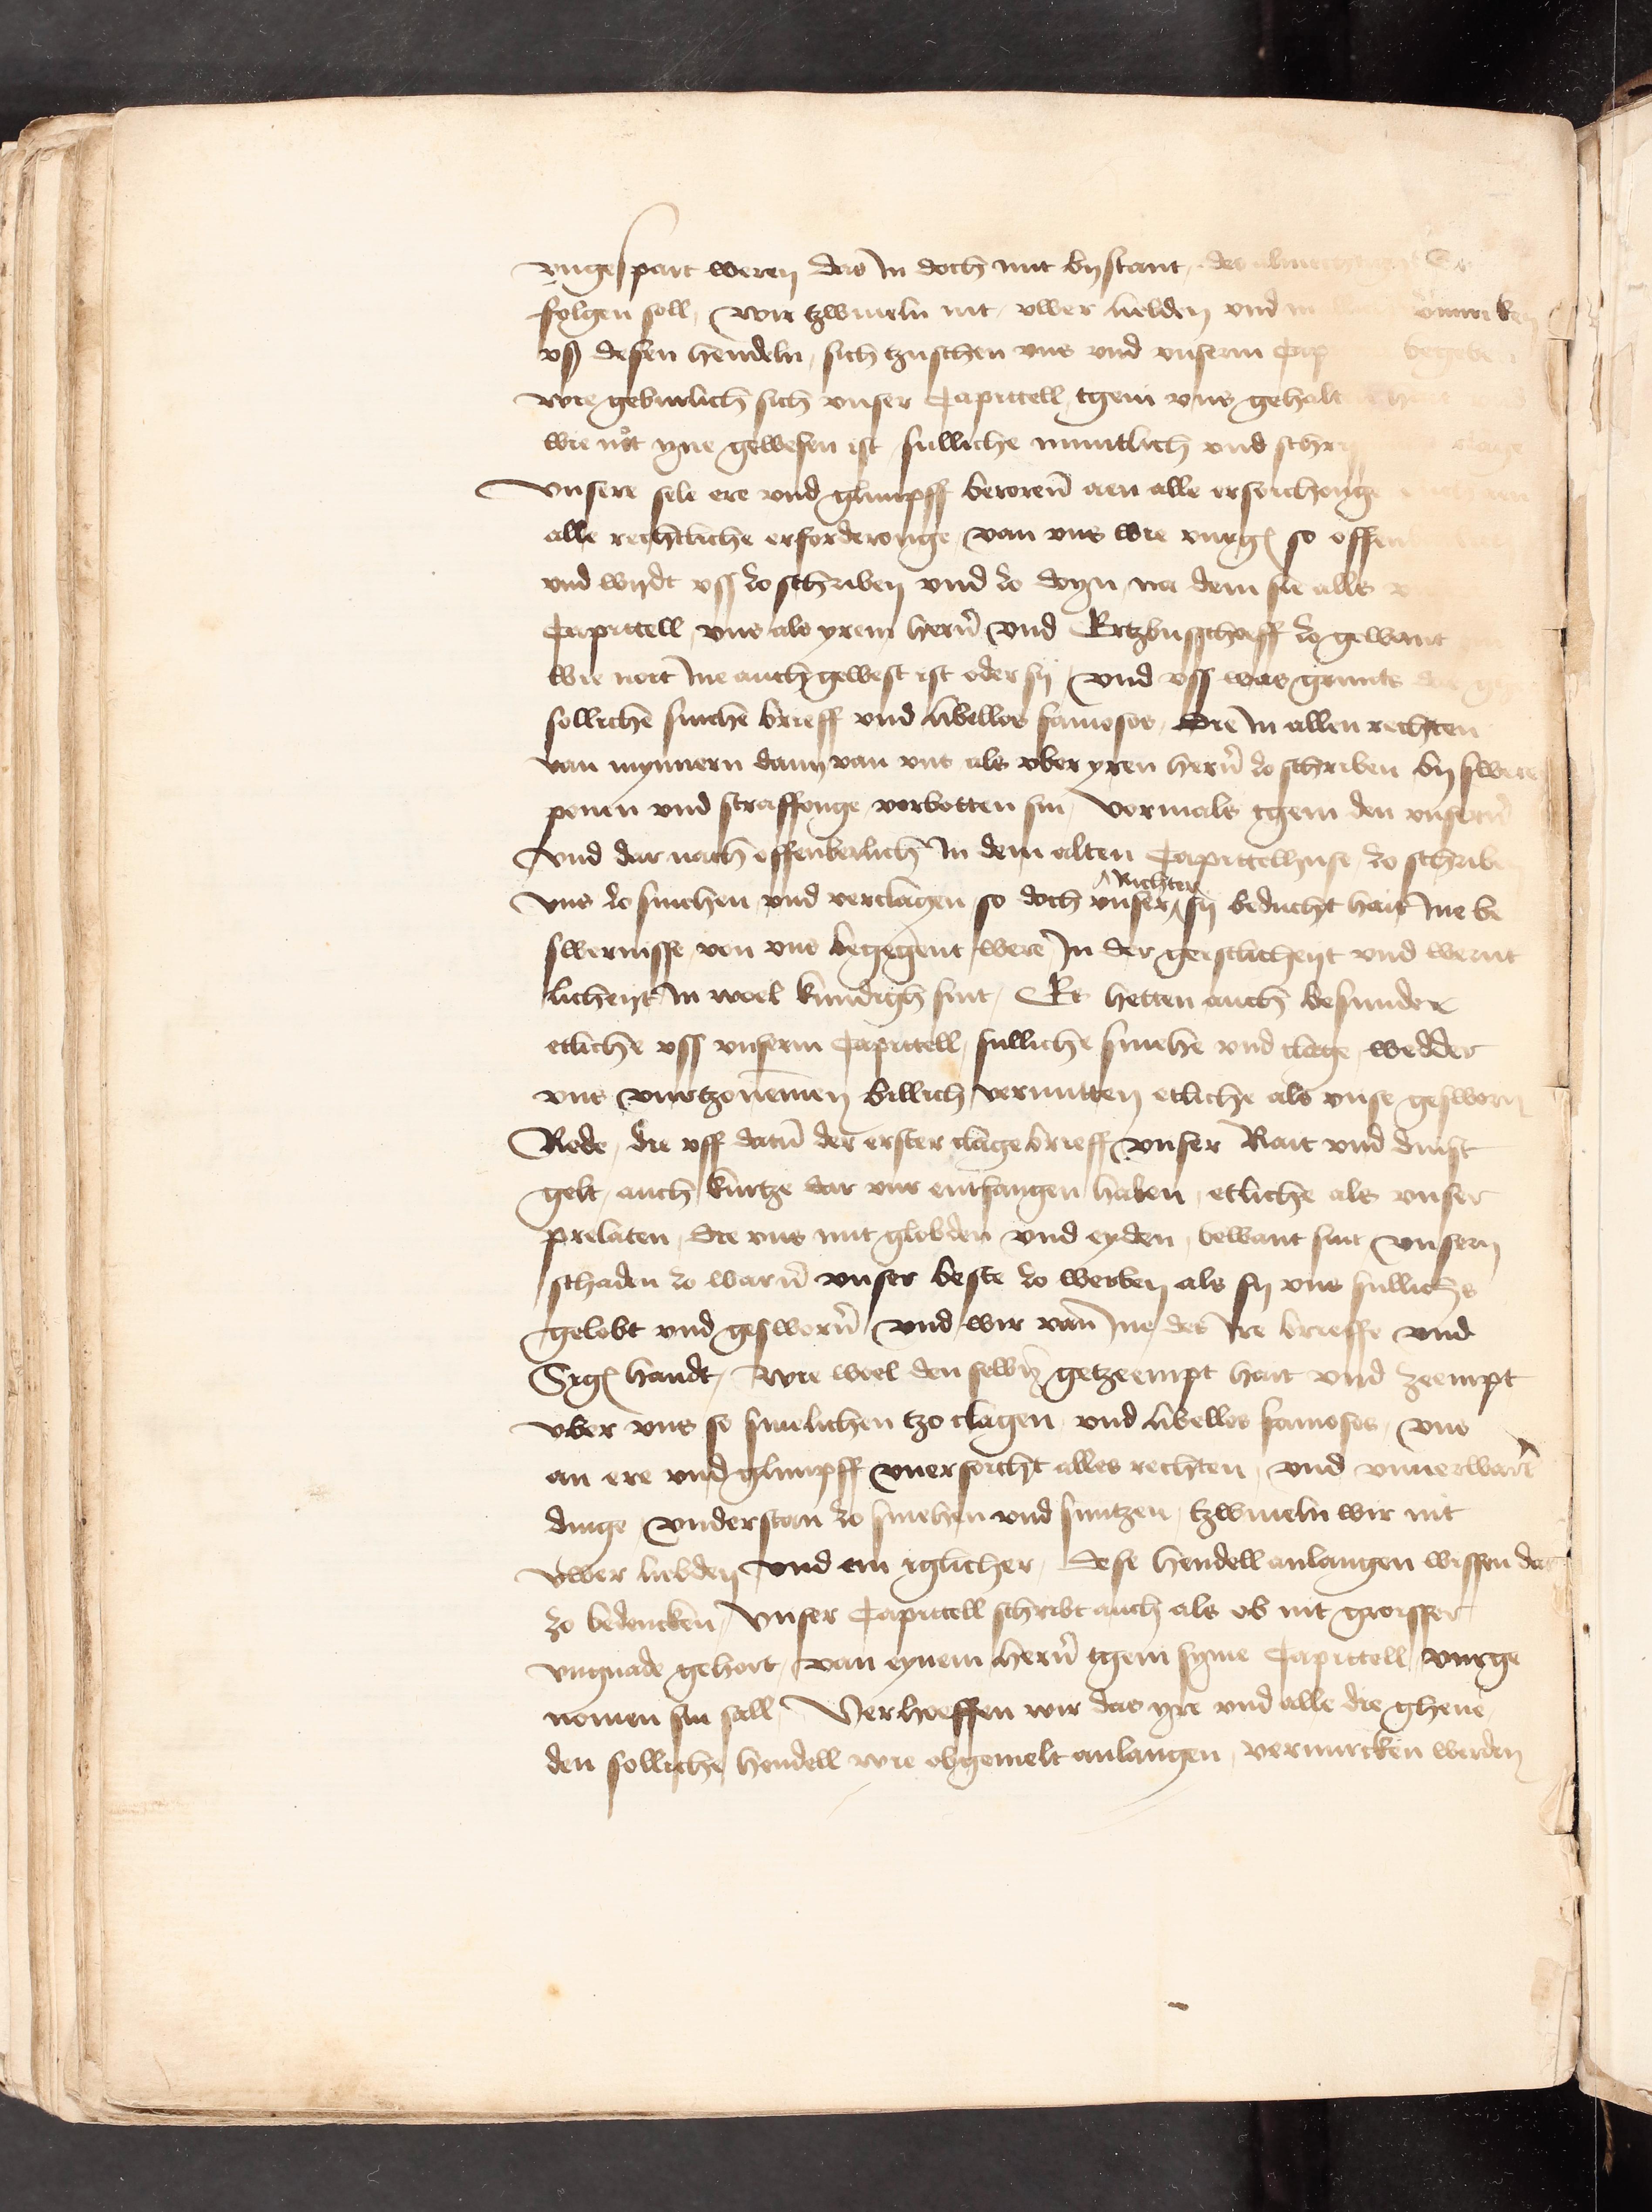 vngespart weren das In doch mit bystant des
folgen soll, wir tzwiueln nit, vwer liebden vnd
vß desen hendeln, sich tzuschen vns vnd vnserm Cap begebe
wie geburlich sich vnser Capittell tgein vns gehalten
wie not yne gewesen ist sulliche muntlich vnd schr clage
Vnsere sele ere vnd glimpff beroren aen alle ersoichonge
alle rechtliche erforderonge van vns wie vurgeschr so offen
vnd wydt vss zo schriben vnd zo doyn, na dem sie alle
Capittell, vns als yrem hern vnd Ertzbusschoeff zo gewant
wie noit Ine auch gewest ist oder sy vnd vss was grunts
sollichen smehe brieff vnd libellos famosos, Die In allen rechten
van mynnern dann van vns als ober yren hern zo schriben by swere
ponen vnd straffonge verbotten sin, vormals tgein den vnsern
Vnd dar nach offenberlich In dem alten Capittelhuse, zo schriben
Vns zo smehen vnd verclagen so doch vnser ^Richter sy beducht hait Ine be
swernisse von vns begegent were In der geistlicheyt vnd wernt
licheyt In woel kundich sint, Es hetten auch besunder
etliche vss vnserm Capittell, sulliche smehe vnd clage wedder
vns vurtzonemen billich vermitten etliche als vnse gesworn
Rede, die vff datu der erster clage brieff vnser Rait vnd dinst
gelt, auch kurtze dar vur entfangen haben, etliche als vnser
prelaten, die vns mit globden vnd eyden, bewant sint vnsern
schaden zo warn vnser beste zo werben als sy vns sullichs
gelobt vnd gesworn vnd wir van Ine des Ire brieffe vnd
Segel handt, Wie woel den selben getzeempt hait vnd zeempt
vber vns so smelichen tzo clagen vnd libellos famosos, vns
an ere vnd glimpff vnersoicht alles rechten, vnd vnuerwart
dinge vnderstan zo smehen vnd smitzen, tzwiueln wir nit
vwer liebden vnd ein iglicher, dese hendell anlangen wissen dat
zo bedencken, Vnser Capittell schribt auch als ob nit groisser
vngnade gehort, van eynem hern tgein syme Capittell vurge
nomen sin sall, Verhoeffen wir das yre vnd alle die ghene
den solliche hendell wie obgemelt anlangen, vermircken werden